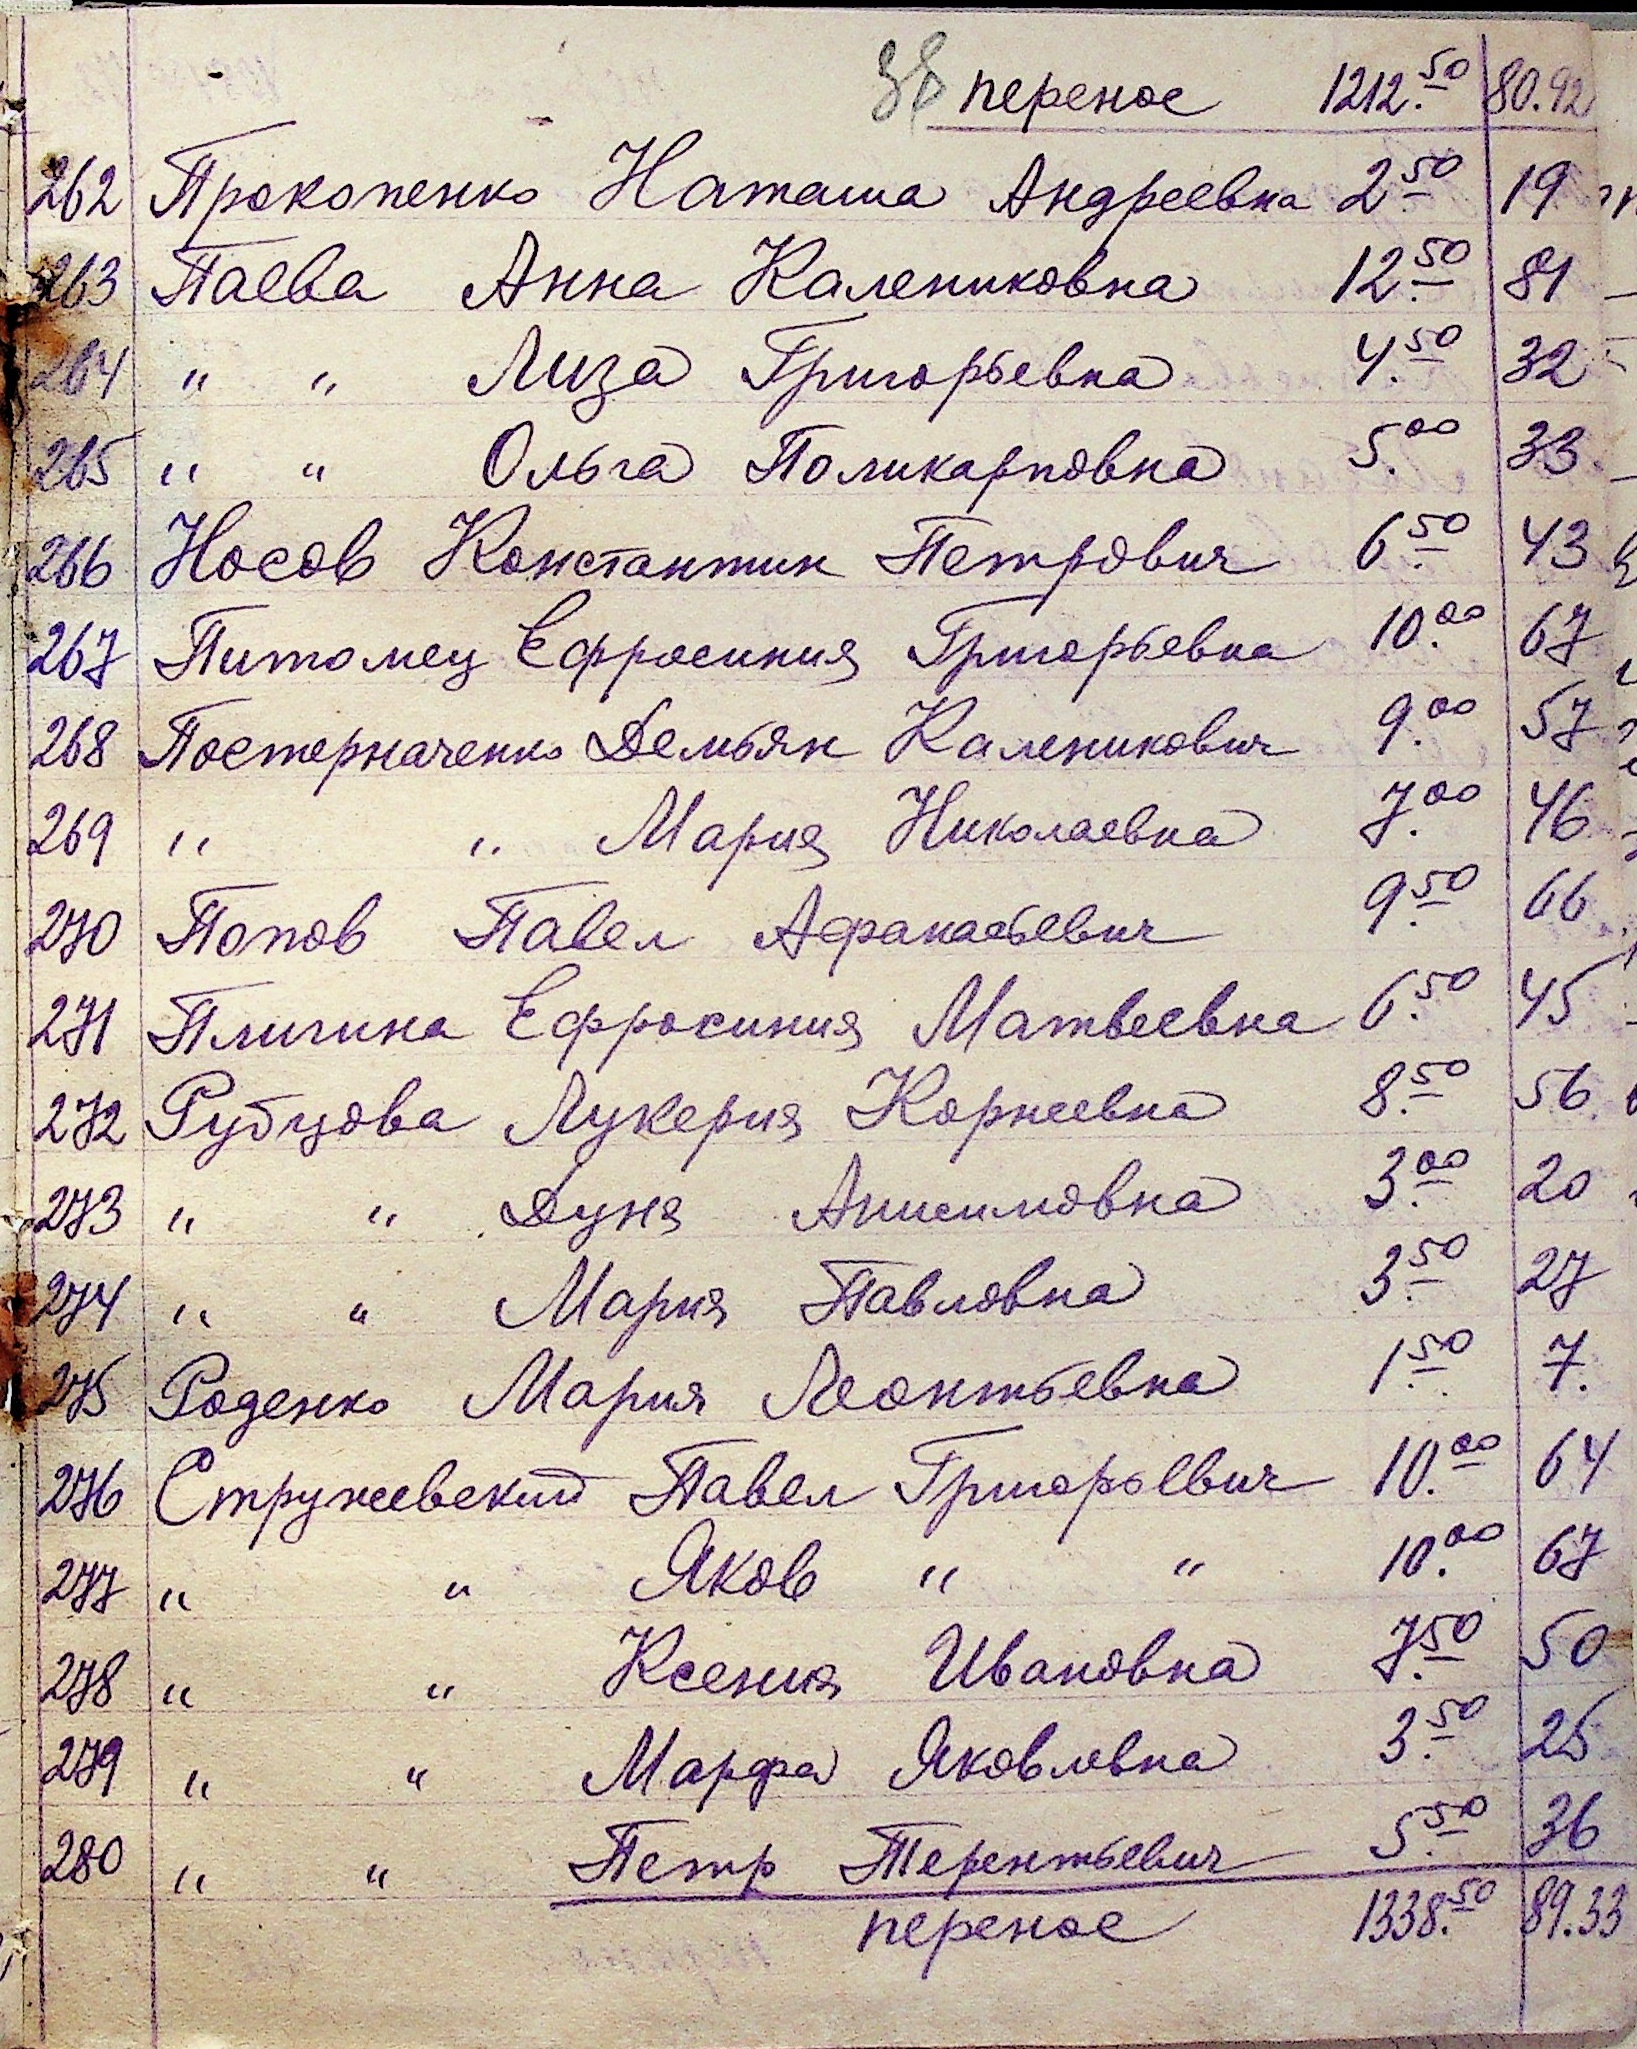 38 перенос 1212.50 80.92
262 Прокопенко Наташа Андреевна 2.50 19
263 Паева Анна Калениковна 12.50 81
264 " " Лиза Григорьевна 4.50 32
265 " " Ольга Поликарповна 5.00 33
266 Носов Константин Петрович 6.50 43
267 Питомец Ефросиния Григорьевна 10.00 67
268 Постерначенко Демьян Каленикович 9.00 57
269 " " Мария Николаевна 7.00 46
270 Попов Павел Афанасьевич 9.50 66
271 Плигина Ефросиния Матвеевна 6.50 45
272 Рубцова Лукерия Корнеевна 8.50 56
273 " " Дуня Анисимовна 3.00 20
274 " " Мария Павловна 3.50 27
275 Роденко Мария Леонтьевна 1.50 7.
276 Стружевский Павел Григорьевич 10.00 64
277 " " Яков " " 10.00 67
278 " " Ксения Ивановна 7.50 50
279 " " Марфа Яковлевна 3.50 25
280 " " Петр Терентьевич 5.50 36
перенос 1338.50 89.33